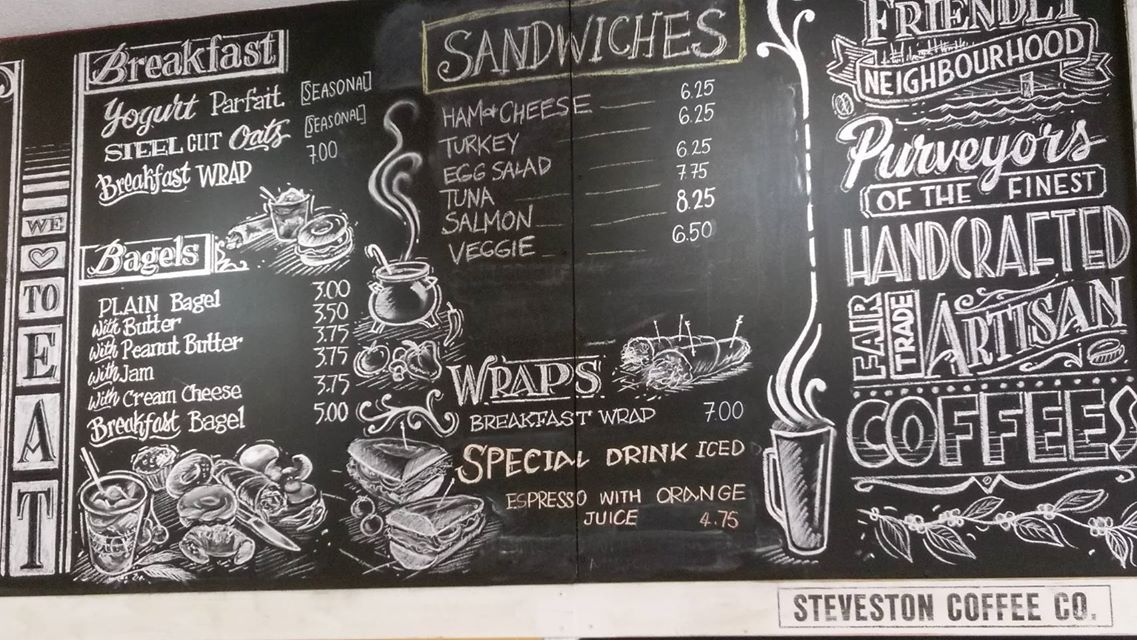 WE
♡
TO
EAT
Breakfast
Yogurt Parfait [SEASONAL]
STEEL CUT Oats [SEASONAL]
Breakfast WRAP 7.00
Bagels
PLAIN Bagel 3.00
with Butter 3.50
with Peanut Butter 3.75
with Jam 3.75
with Cream Cheese 3.75
Breakfast Bagel 5.00
SANDWICHES
HAM & CHEESE 6.25
TURKEY 6.25
EGG SALAD 6.25
TUNA 7.75
SALMON 8.25
VEGGIE 6.50
WRAPS
BREAKFAST WRAP 7.00
SPECIAL DRINK ICED
ESPRESSO WITH ORANGE
JUICE 4.75
FRIENDLY
NEIGHBOURHOOD
Purveyors
OF THE FINEST
HANDCRAFTED
FAIR TRADE ARTISAN
COFFEES
STEVESTON COFFEE CO.